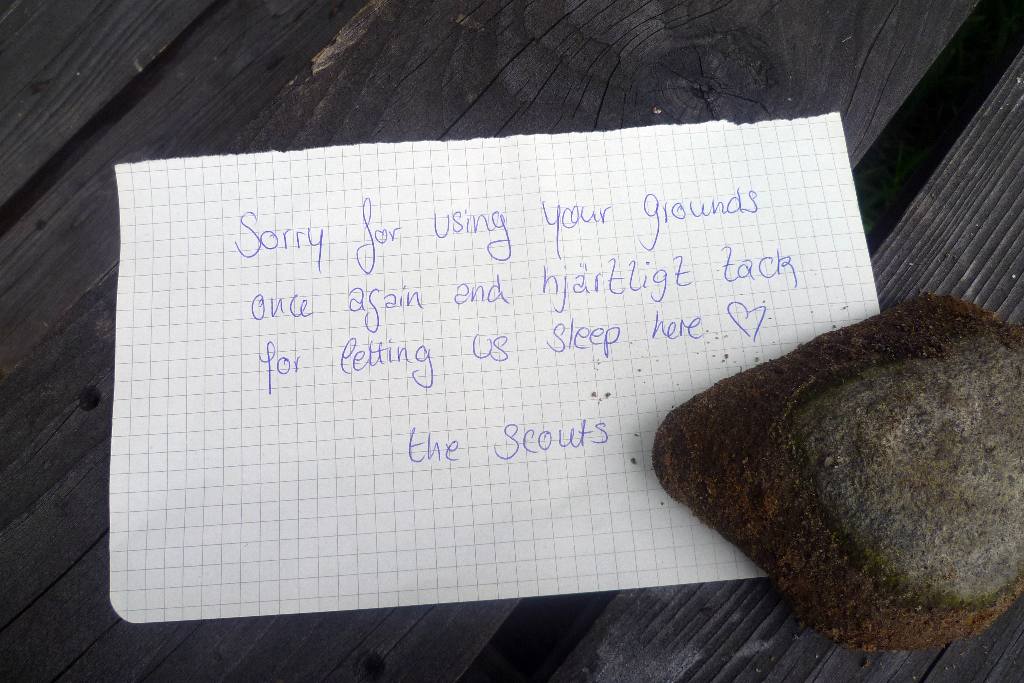 Sorry for using your grounds
once again and hjärtligt tack
for letting us sleep here ♡
the scouts